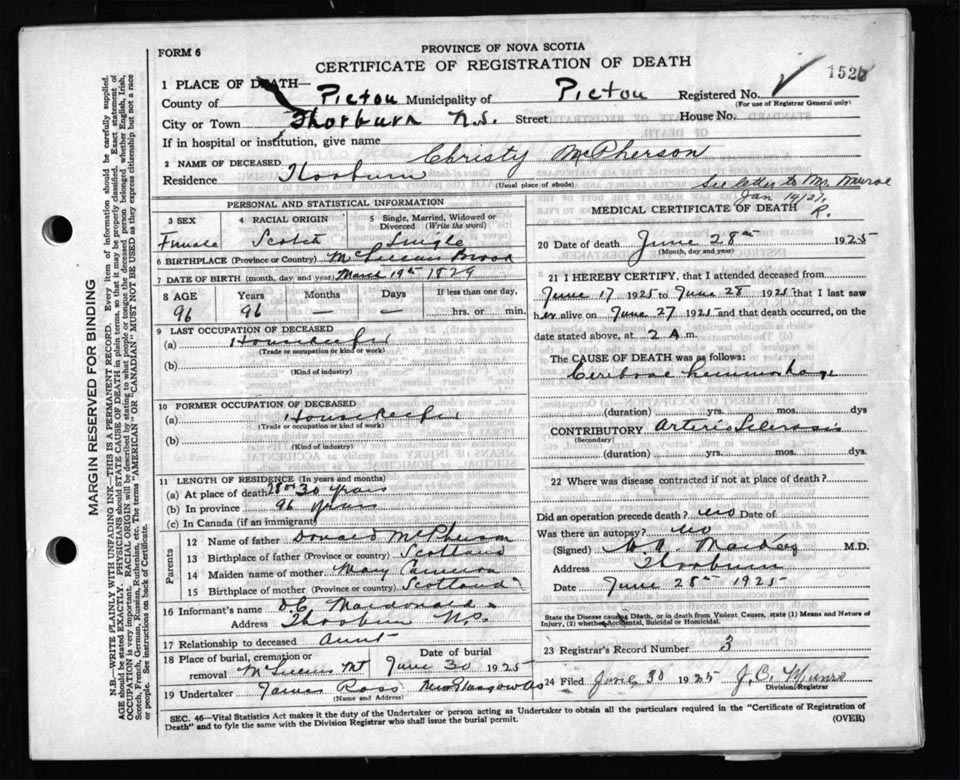 FORM 6
PROVINCE OF NOVA SCOTIA
CERTIFICATE OF REGISTRATION OF DEATH
1 PLACE OF DEATH—
County of Pictou Municipality of Pictou Registered No.
(For use of Registrar General only)
City or Town Thorburn N.S. Street House No.
If in hospital or institution, give name
2 NAME OF DECEASED Christy McPherson
Residence Thorburn
(Usual place of abode)
See letter to Mr. Munroe
Jan 14/21
R.
PERSONAL AND STATISTICAL INFORMATION
3 SEX
Female
4 RACIAL ORIGIN
Scotch
5 Single, Married, Widowed or Divorced (Write the word)
Single
6 BIRTHPLACE (Province or Country) McLellans Brook
7 DATE OF BIRTH (month, day and year) March 19th 1829
8 AGE Years Months Days If less than one day,
96 96 — — hrs. or min.
9 LAST OCCUPATION OF DECEASED
(a) Housekeeper
(Trade or occupation or kind or work)
(b)
(Kind of industry)
10 FORMER OCCUPATION OF DECEASED
(a) Housekeeper
(Trade or occupation or kind of work)
(b)
(Kind of Industry)
11 LENGTH OF RESIDENCE (In years and months)
(a) At place of death 30 years
(b) In province 96 years
(c) In Canada (if an immigrant)
Parents
12 Name of father Donald McPherson
13 Birthplace of father (Province or country) Scotland
14 Maiden name of mother Mary Cameron
15 Birthplace of mother (Province or country) Scotland
16 Informant's name D.C. Macdonald
Address Thorburn N.S.
17 Relationship to deceased Aunt
18 Place of burial, cremation or removal Date of burial
Mt June 30 1925
19 Undertaker James Ross New Glasgow NS
(Name and Address)
MEDICAL CERTIFICATE OF DEATH
20 Date of death June 28th 1925
(Month, day and year)
21 I HEREBY CERTIFY, that I attended deceased from
June 17 1925 to June 28 1925 that I last saw
her alive on June 27 1925 and that death occurred, on
date stated above, at 2 A m.
The CAUSE OF DEATH was as follows:
Cerebral hemmorhage
(duration) yrs. mos. dys
CONTRIBUTORY Arterio Sclerosis
(Secondary)
(duration) yrs. mos. dys.
22 Where was disease contracted if not at place of death?
Did an operation precede death? no Date of
Was there an autopsy? no
(Signed) M.D.
Address Thorburn
Date June 28th 1925
State the Disease causing Death, or in Death from Violent Causes, state (1) Means and Nature of
Injury, (2) whether Accidental, Suicidal or Homicidal.
23 Registrar's Record Number 3
24 Filed June 30 1925 J.C. Munro
Division Registrar
SEC. 46—Vital Statistics Act makes it the duty of the Undertaker or person acting as Undertaker to obtain all the particulars required in the "Certificate of Registration of
Death" and to fyle the same with the Division Registrar who shall issue the burial permit.
(OVER)
MARGIN RESERVED FOR BINDING
N.B.—WRITE PLAINLY WITH UNFADING INK—THIS IS A PERMANENT RECORD. Every item of information should be carefully supplied.
AGE should be stated EXACTLY. PHYSICIANS should STATE CAUSE OF DEATH in plain terms, so that it may be properly classified. Exact statement of
OCCUPATION is very important. RACIAL ORIGIN will be described by stating to what people or tongue the deceased person belonged, whether English, Irish,
Scotch, French, German, Russian, Ruthenian, etc. The terms "AMERICAN" OR "CANADIAN" MUST NOT BE USED as they express citizenship but not a race
or people. See instructions on back of Certificate.